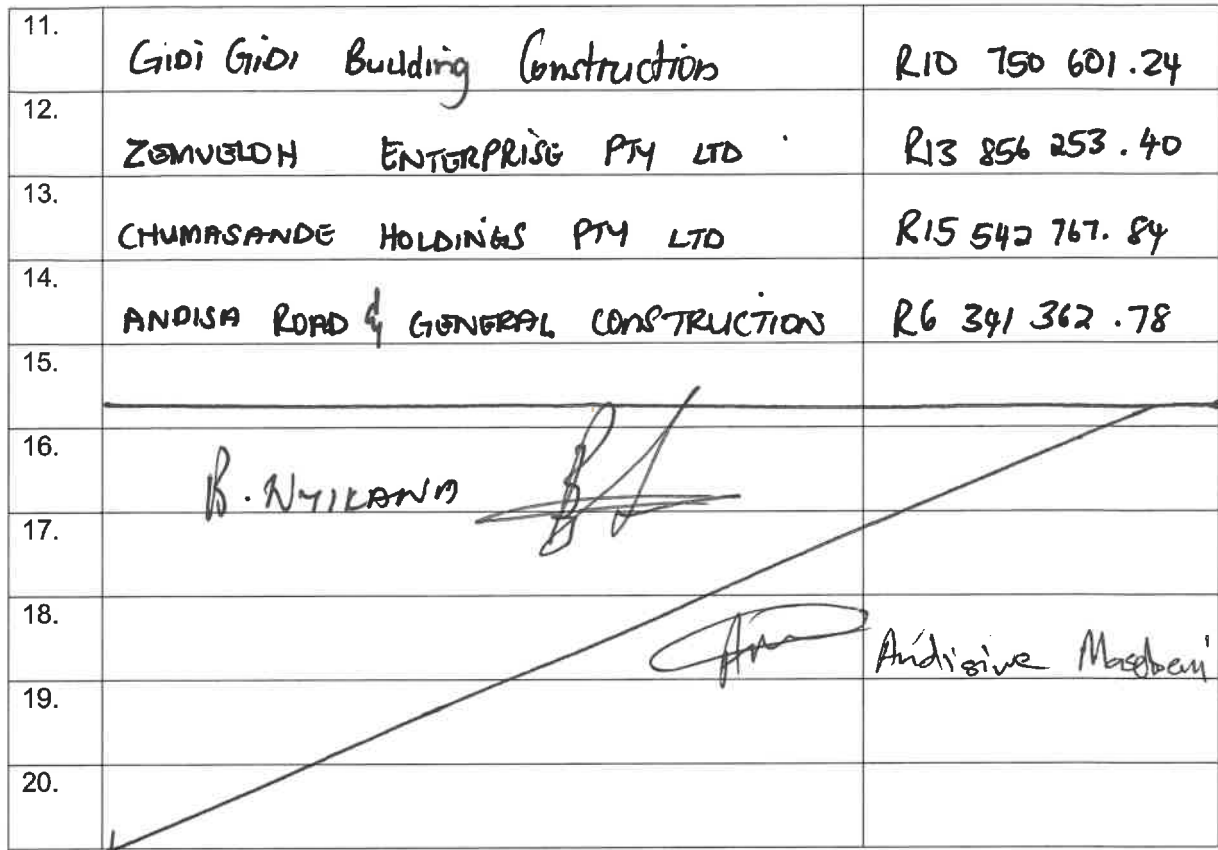 11. GiDi GiDi Building Construction R10 750 601.24
12. ZEMVELOH ENTERPRISE PTY LTD R13 856 253.40
13. CHUMASANDE HOLDINGS PTY LTD R15 542 767.84
14. ANDISA ROAD & GENERAL CONSTRUCTION R6 341 362.78
15.
16.
B. NYIKANA
17.
18.
Andisiwe
19.
20.